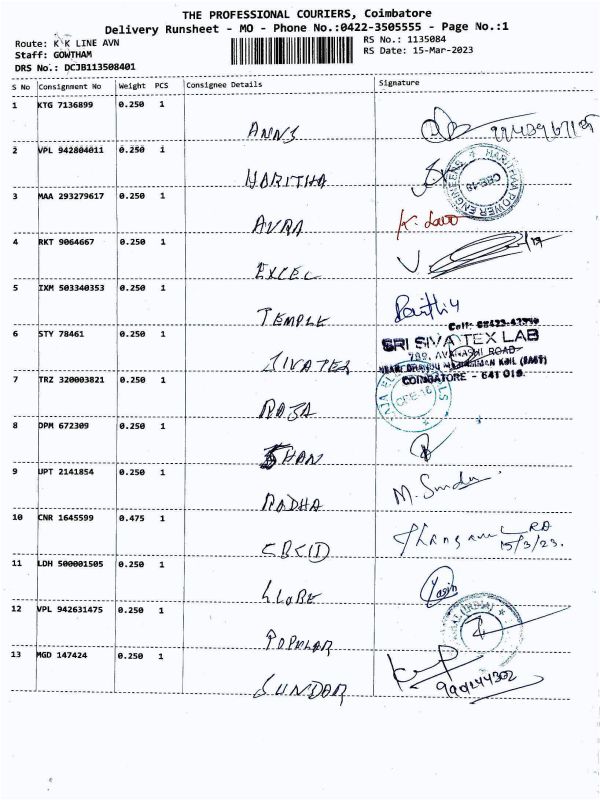 THE PROFESSIONAL COURIERS, Coimbatore
Delivery Runsheet - MO - Phone No.:0422-3505555 - Page No.:1
Route: K K LINE AVN
Staff: GOWTHAM
DRS No.: DCJB113508401
RS No.: 1135084
RS Date: 15-Mar-2023
S No Consignment No Weight PCS Consignee Details Signature
1 KTG 7136899 0.250 1
ANNS
2 VPL 942804011 0.250 1
HARITHA
HARITHAA POWER ENGINEERS
CBE-18
3 MAA 293279617 0.250 1
AVRA
4 RKT 9064667 0.250 1
EXCEL
5 IXM 503340353 0.250 1
TEMPLE
6 STY 78461 0.250 1
SIVATEX
SRI SIVA TEX LAB
AVANASHI ROAD
COIMBATORE - 641 018.
7 TRZ 320003821 0.250 1
RAJA
8 DPM 672309 0.250 1
SHAN
9 UPT 2141854 0.250 1
RADHA
M. Sundar
10 CNR 1645599 0.475 1
CBCID
15/3/23.
11 LDH 500001505 0.250 1
GLOBE
Yasin
12 VPL 942631475 0.250 1
POPULAR
13 MGD 147424 0.250 1
SUNDAR